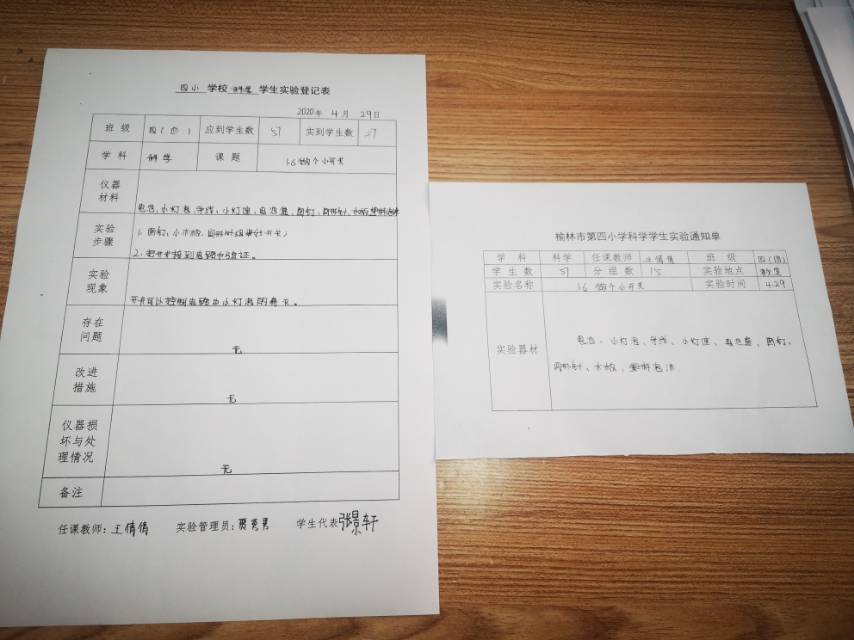 四小 学校 科学 学生实验登记表
2020年 4月 29日
班级 四( ) 应到学生数 57 实到学生数 57
学科 科学 课题 1.6 做个小开关
仪器材料 电池、小灯泡、导线、小灯座、电池盒、图钉、回形针、木板、塑料泡沫
实验步骤 1. 图钉、小木板、回形针组装好开关;
2. 把开关接到电路中验证。
实验现象 开关可以控制电路中小灯泡的亮灭。
存在问题 无
改进措施 无
仪器损坏与处理情况 无
备注
任课教师:王倩倩 实验管理员:贾秀秀 学生代表 张景轩
榆林市第四小学科学学生实验通知单
学科 科学 任课教师 王倩倩 班级 四( )
学生数 57 分组数 15 实验地点 教室
实验名称 1.6 做个小开关 实验时间 4.29
实验器材 电池、小灯泡、导线、小灯座、电池盒、图钉、
回形针、木板、塑料泡沫.